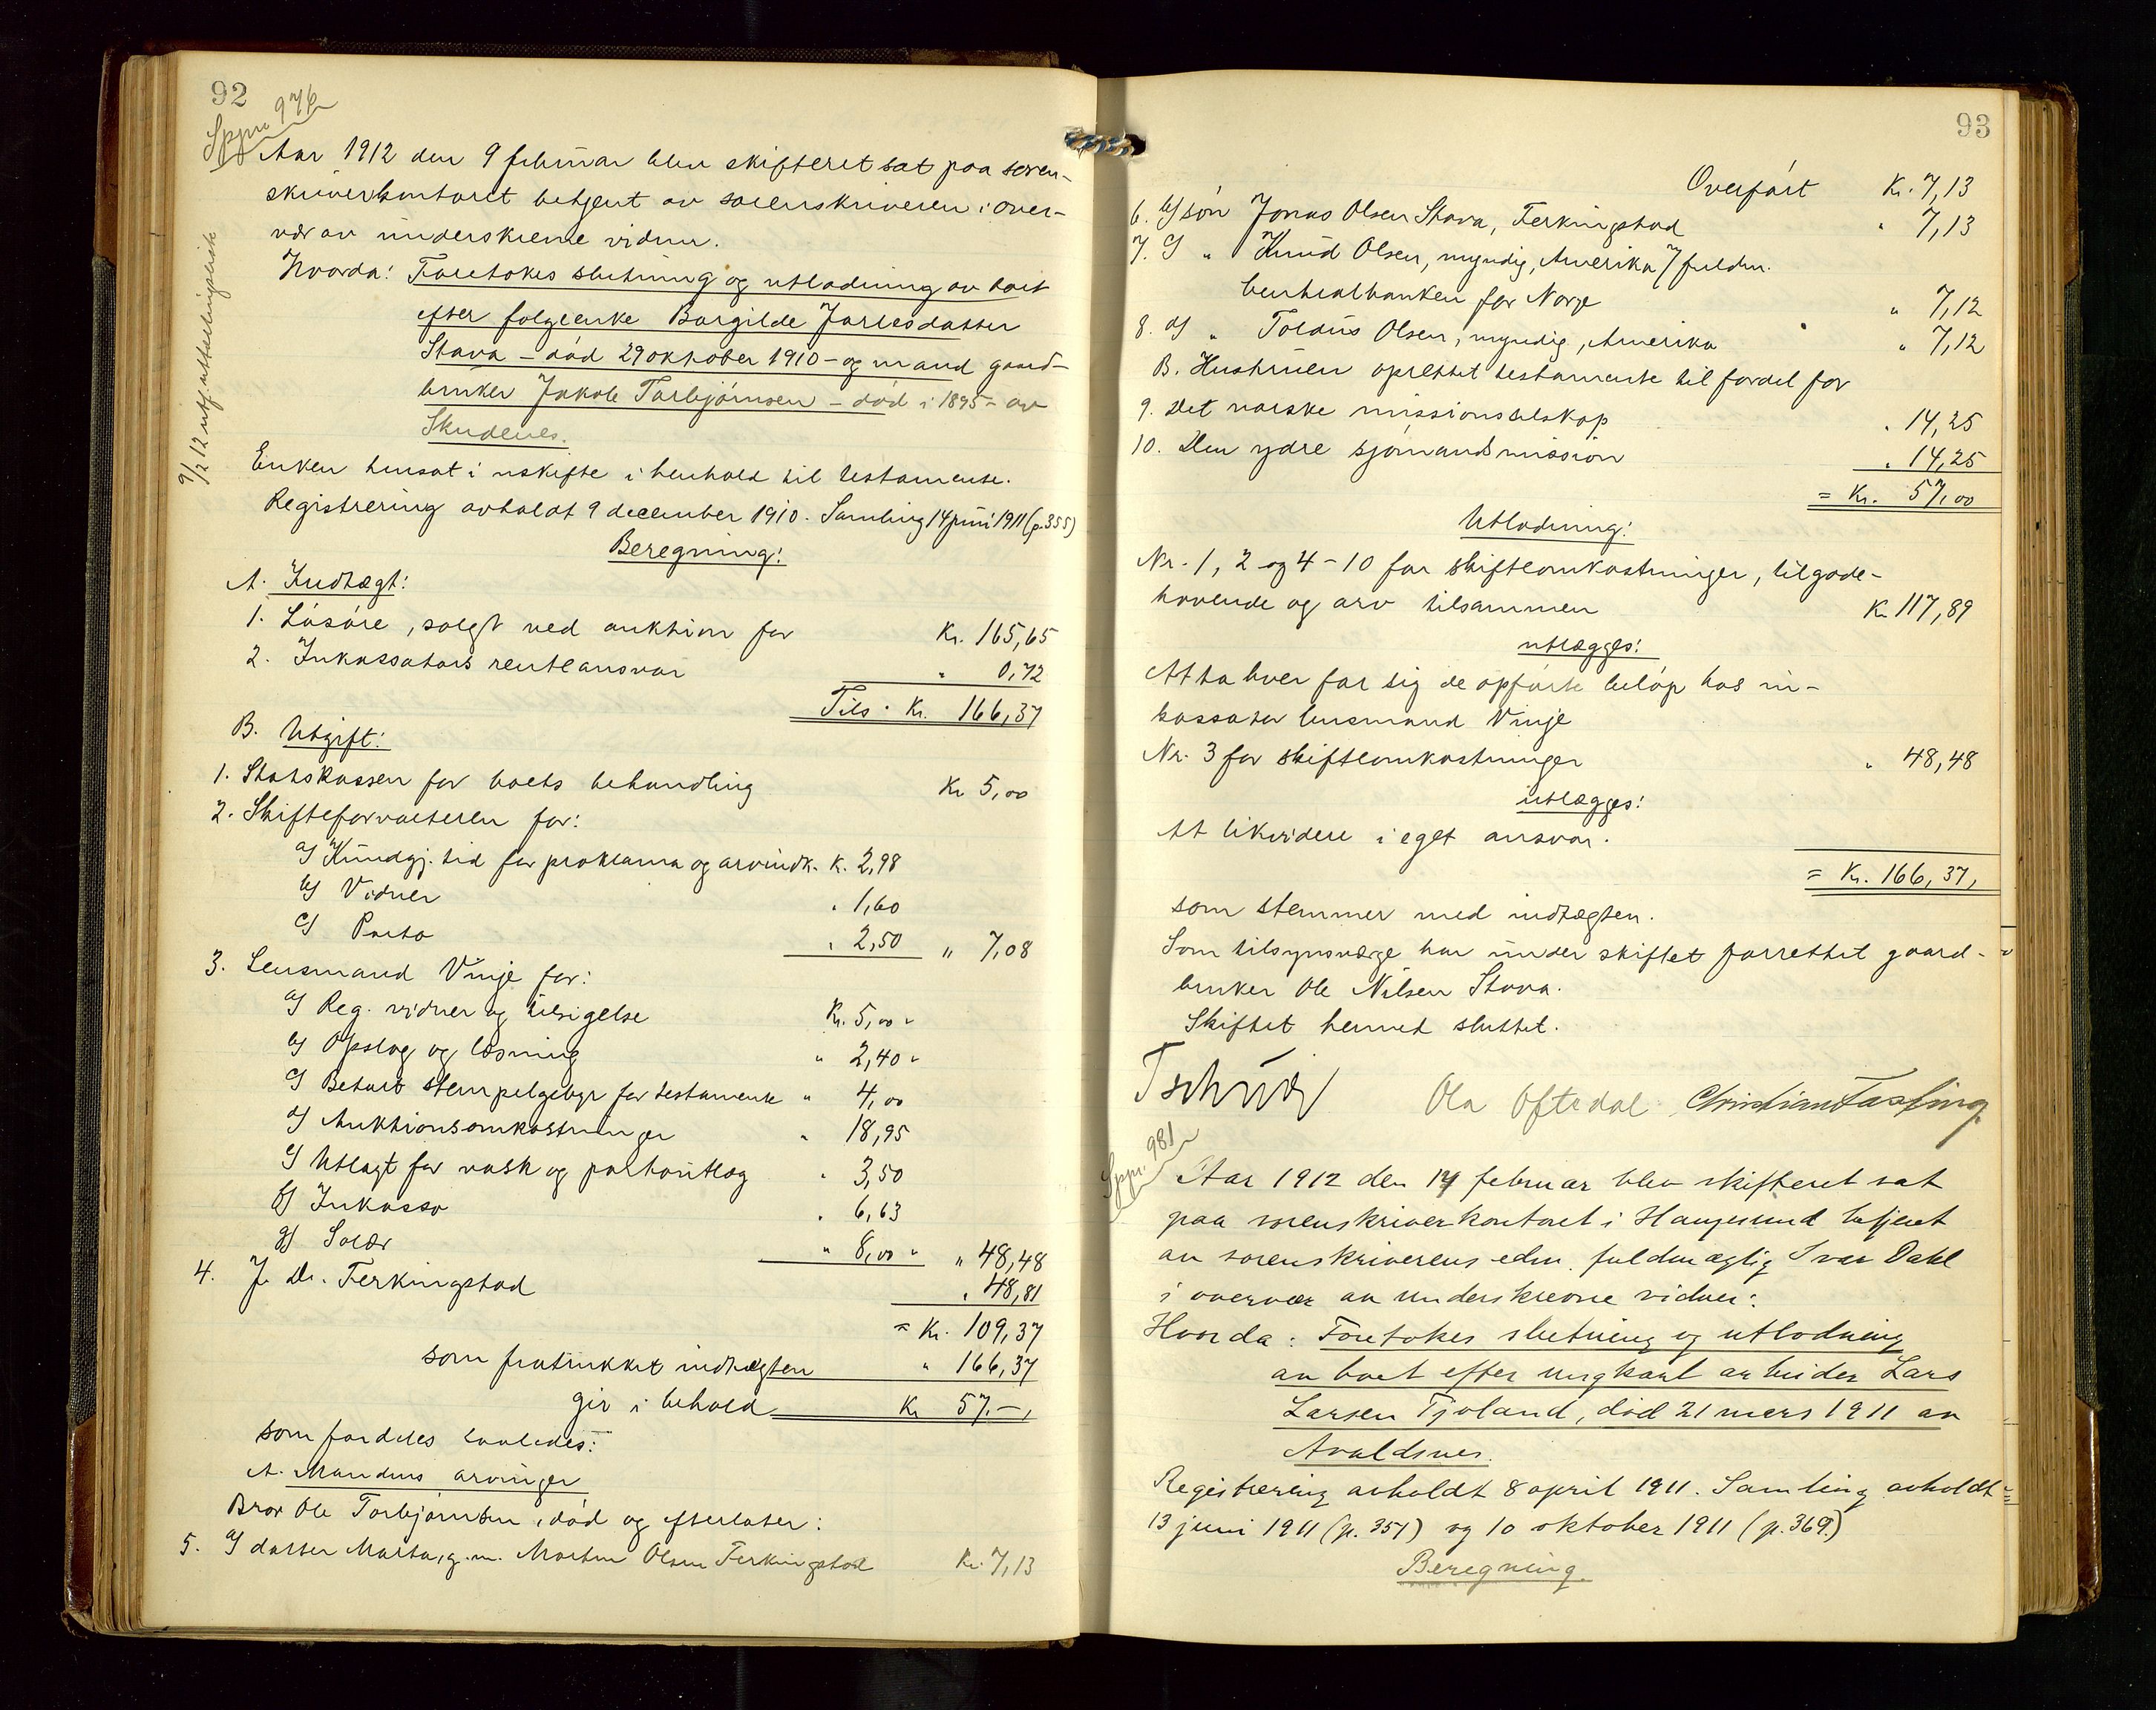 92
Sppr. 976
9/2 12 utf. utskriftingsliste
Aar 1912 den 9 februar blev skifteret sat paa soren-
skriverkontoret betjent av sorenskriveren i over-
vær av underskrevne vidner.
Hvorda: Foretokes slutning og utlodning av boet
efter følgeenke Borgilde Jarlesdatter
Stava – død 29 oktober 1910 – og mand gaard-
bruker Jakob Torbjørnsen – død i 1895 – av
Skudenes.
Enken hensat i uskifte i henhold til testamente.
Registrering avholdt 9 december 1910. Samling 14 juni 1911 (p. 355)
Beregning:
A. Indtægt:
1. Løsøre, solgt ved auktion for Kr. 165,65
2. Inkassators renteansvar " 0,72
Tils. Kr. 166,37
B. Utgift:
1. Statskassen for boets behandling Kr 5,00
2. Skifteforvalteren for:
a) Kundgj. tid for proklama og arvindk. K. 2,98
b) Vidner " 1,60
c) Porto " 2,50 " 7,08
3. Lensmand Vinje for:
a) Reg. vidner og tilsigelse Kr. 5,00 "
b) Opslag og læsning " 2,40 "
c) Betalt stempelgebyr for testamente " 4,00
d) Auktionsomkostninger " 18,95
e) Utlagt for vask og portoutlæg " 3,50
f) Inkasso " 6,63
g) Salær " 8,00 " " 48,48
4. J. Dr. Ferkingstad " 48,81
= Kr. 109,37
som fratrukket indtægten " 166,37
gir i behold Kr 57.–,
som fordeles saaledes:
A. Mandens arvinger
Bror Ole Torbjørnsen, død og efterlater:
5. a) datter Marta, g. m. Morten Olsen Ferkingstad Kr. 7,13
93
Overført Kr. 7,13
6. b) søn Jonas Olsen Stava, Ferkingstad " 7,13
7. c) " Knud Olsen, myndig, Amerika / fuldm.
Centralbanken for Norge " 7,12
8. d) " Toldus Olsen, myndig, Amerika " 7,12
B. Hustruen oprettet testamente til fordel for
9. Det norske missionsselskap " 14,25
10. Den ydre sjømandsmission " 14,25
= Kr. 57,00
Utlodning:
Nr. 1, 2 og 4 – 10 for skifteomkostninger, tilgode-
havende og arv tilsammen Kr 117,89
utlægges:
At ta hver for sig de opførte beløp hos in-
kassator lensmand Vinje
Nr. 3 for skifteomkostninger " 48,48
utlægges:
At likvidere i eget ansvar.
= Kr. 166,37,
som stemmer med indtægten.
Som tilsynsværge har under skiftet forrettet gaard-
bruker Ole Nilsen Stava.
Skiftet hermed sluttet.
Tschudi Ola Oftedal Christian Fasting
Sppr. 981
Aar 1912 den 14 februar blev skifteret sat
paa sorenskriverkontoret i Haugesund betjent
av sorenskriverens edsv. fuldmægtig Ivar Dahl
i overvær av underskrevne vidner:
Hvorda: Foretokes slutning og utlodning
av boet efter ungkarl arbeider Lars
Larsen Tjoland, død 21 mars 1911 av
Avaldsnes.
Registrering avholdt 8 april 1911. Samling avholdt
13 juni 1911 (p. 351) og 10 oktober 1911 (p. 369.)
Beregning.